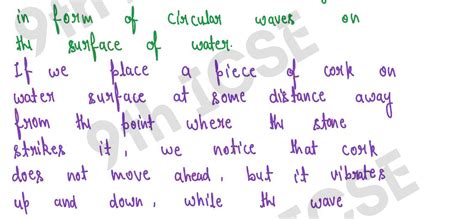 in form of circular waves on
the surface of water.
If we place a piece of cork on
water surface at some distance away
from the point where the stone
strikes it, we notice that cork
does not move ahead, but it vibrates
up and down, while the wave
9th ICSE
9th ICSE